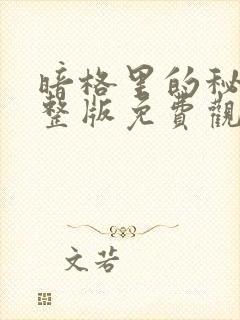 暗格里的秘
整版免費觀
文若